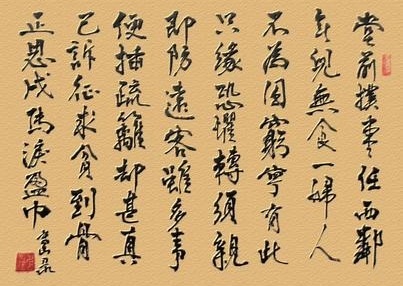 堂前撲棗任西鄰
无兒無食一婦人
不為困窮寧有此
只緣恐懼轉須親
即防遠客雖多事
便插疏籬却甚真
已訴征求貧到骨
正思戎馬淚盈巾